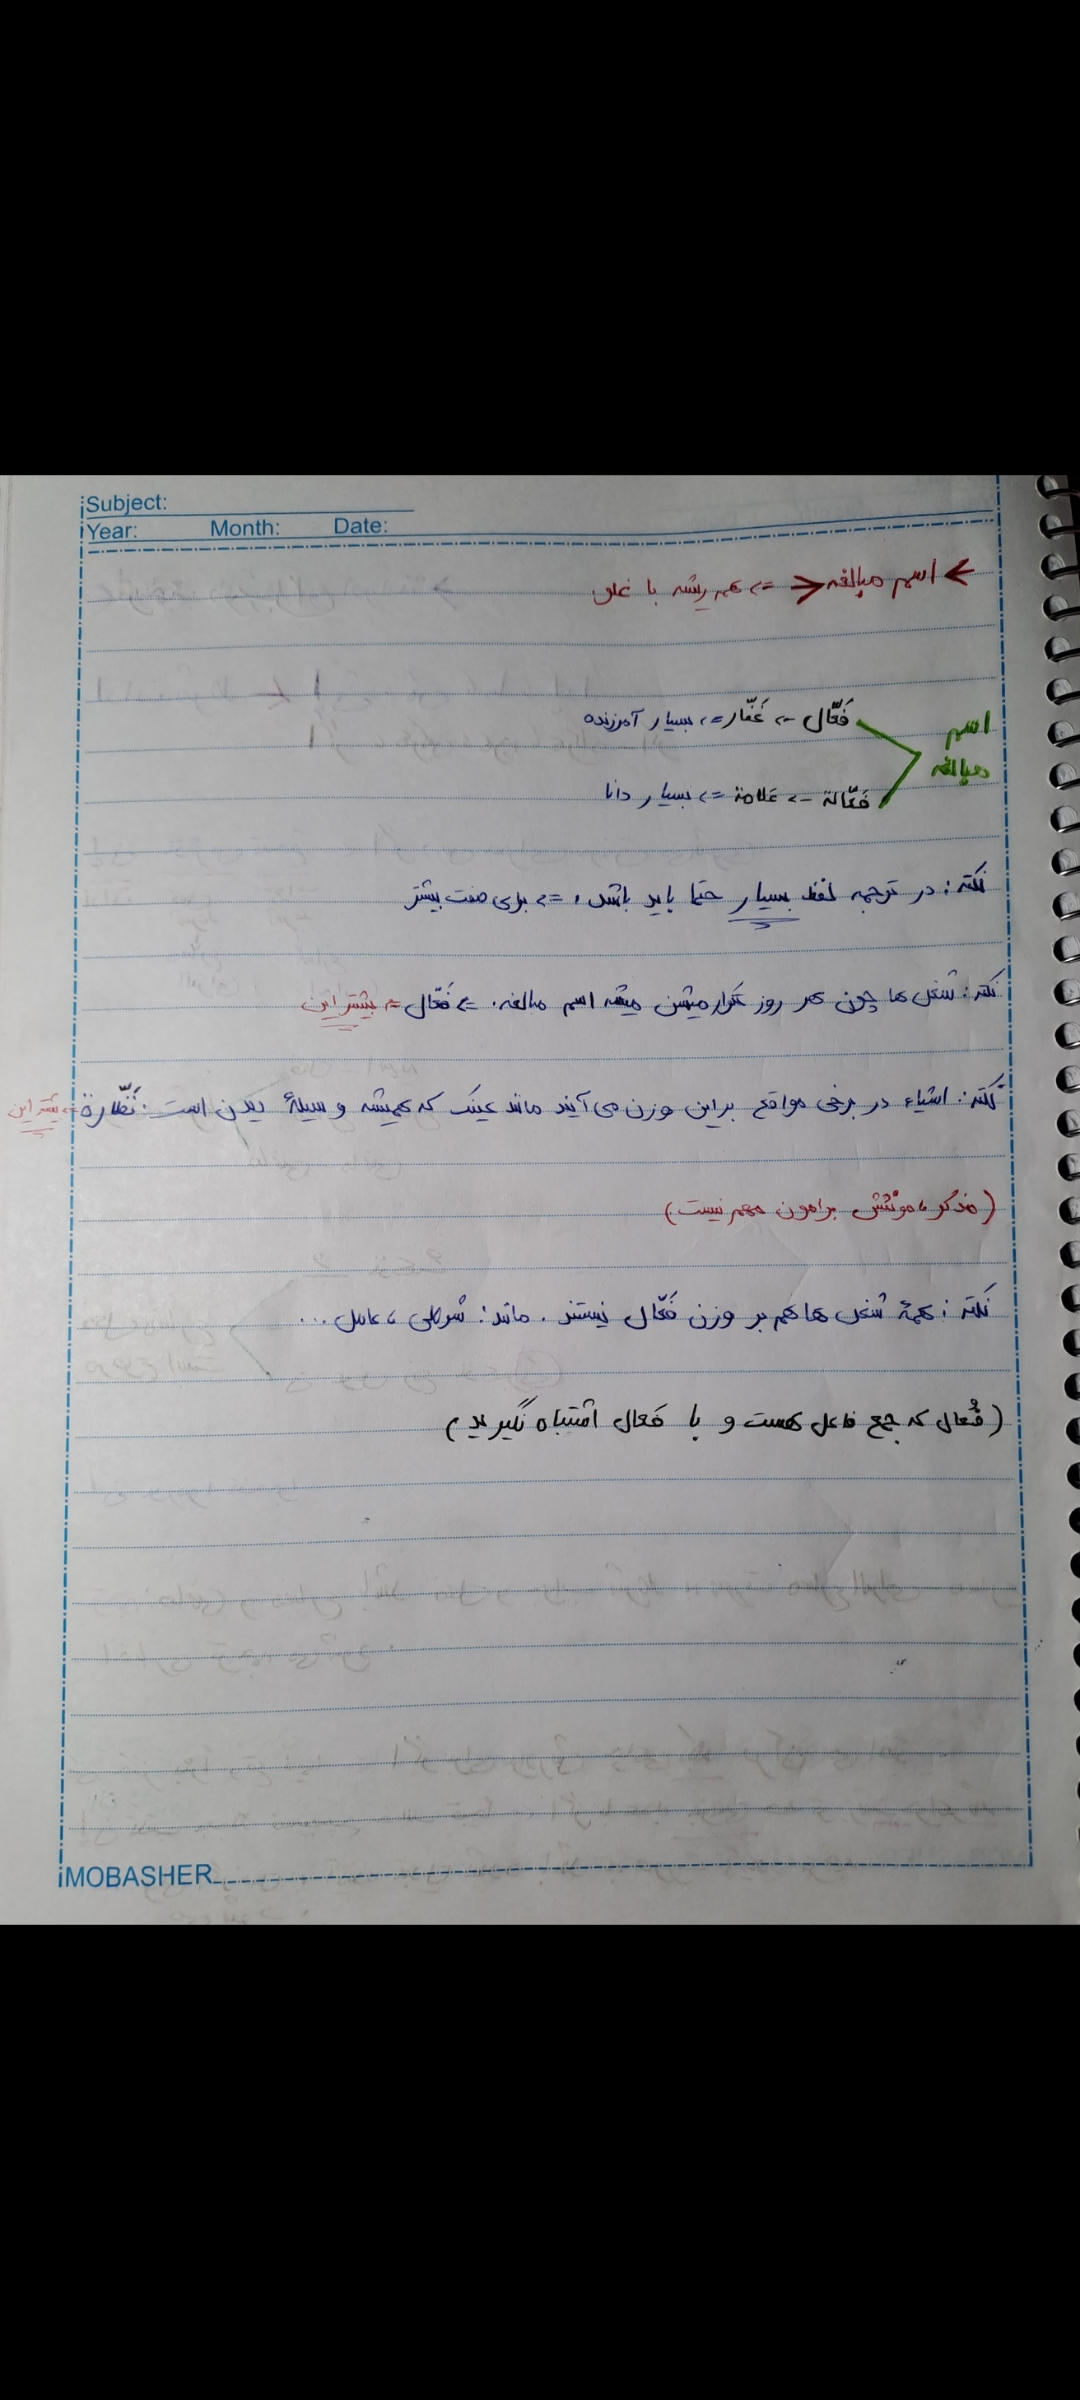 Subject:
Year: Month: Date:
> اسم مبالغه < => هم ریشه با غلو
اسم مبالغه
فَعّال -> غَفّار => بسیار آمرزنده
فَعّالة -> عَلامة => بسیار دانا
نکته: در ترجمه لفظ بسیار حتما باید باشد، => برای صفت بیشتر
نکته: شغل ها چون هر روز تکرار میشن میشه اسم مبالغه. => فَعّال = بیشتر این
نکته: اشیاء در برخی مواقع براین وزن می آیند مانند عینک که همیشه وسیلهٔ دیدن است: نَظّارة => بیشتر این
(مذکر، مونثش برامون مهم نیست)
نکته: همهٔ شغل ها هم بر وزن فَعّال نیستند. مانند: شرطی، عامل ...
(فُعّال که جمع فاعل هست و با فَعال اشتباه نگیرید)
MOBASHER